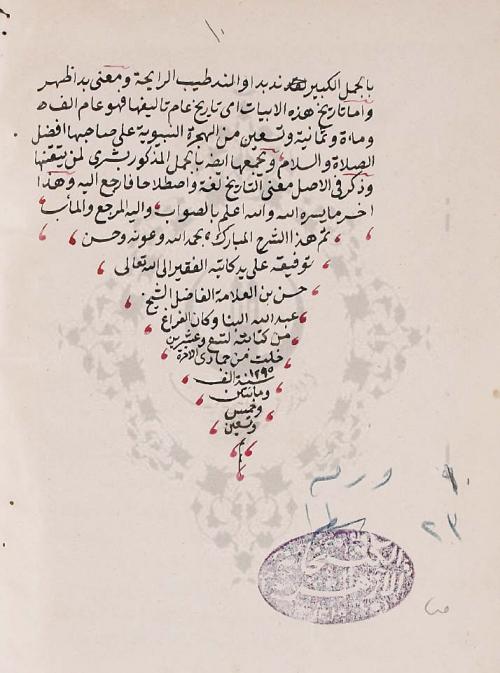 ١٠
بالجمل الكبير لفظ ند بدا والند طيب الرايحة ومعنى بدا ظهر
واما تاريخ هذه الابيات اى تاريخ عام تاليفها فهو عام الف ١٥
وماءة وثمانية وتسعين من الهجرة النبوية على صاحبها افضل
الصلاة والسلام ويجمعها ايضه بالجمل المذكور بشرى لمن يتقنها
وذكر فى الاصل معنى التاريخ لغة واصطلاحا فارجع اليه وهذا
اخر ما يسره الله والله اعلم بالصواب واليه المرجع والمأب
تم هذا الشرح المبارك بحمد الله وعونه وحسن
توفيقه على يد كاتبه الفقير الى الله تعالى
حسن بن العلامة الفاضل الشيخ
عبد الله البنا وكان الفراغ
من كتابته لتسع وعشرين
خلت من جمادى الاخرة
سنة ١٢٩٥ الف
ومائتين
وخمس
وتسعين
٩ ورسم
٢٣ سطرا